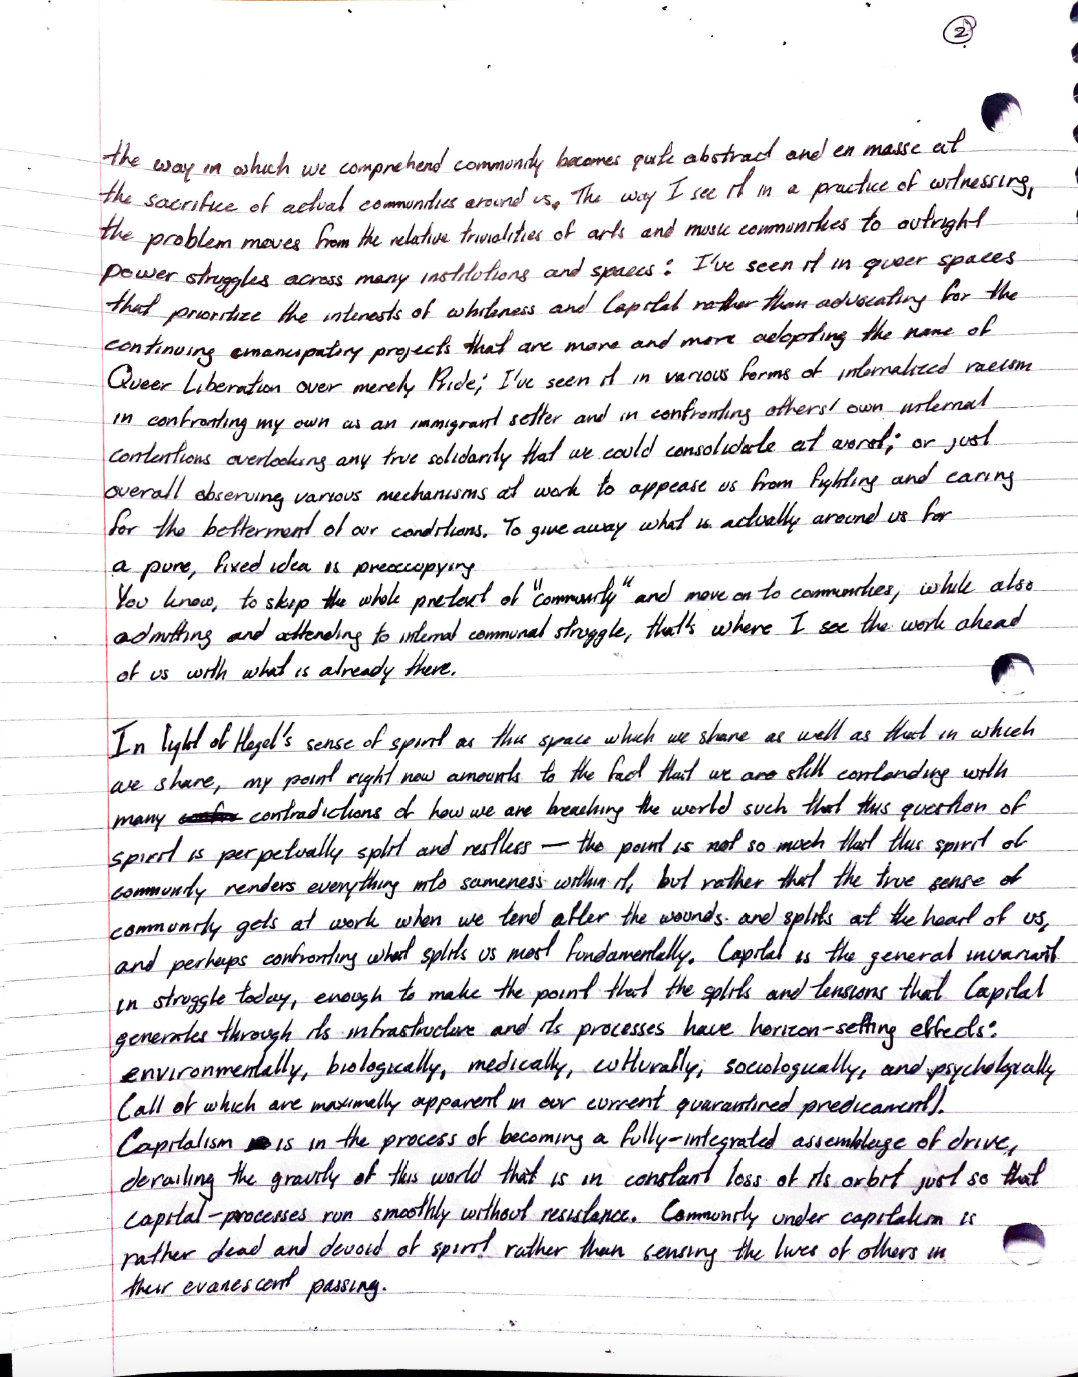 2
the way in which we comprehend community becomes quite abstract and en masse at
the sacrifice of actual communities around us. The way I see it in a practice of witnessing,
the problem moves from the relative trivialities of arts and music communities to outright
power struggles across many institutions and spaces: I've seen it in queer spaces
that prioritize the interests of whiteness and Capital rather than advocating for the
continuing emancipatory projects that are more and more adopting the name of
Queer Liberation over merely Pride; I've seen it in various forms of internalized racism
in confronting my own as an immigrant settler and in confronting others' own internal
contentions overlooking any true solidarity that we could consolidate at worst; or just
overall observing various mechanisms at work to appease us from fighting and caring
for the betterment of our conditions. To give away what is actually around us for
a pure, fixed idea is preoccupying
You know, to skip the whole pretext of "community" and move on to communities, while also
admitting and attending to internal communal struggle, that's where I see the work ahead
of us with what is already there.
In light of Hegel's sense of spirit as this space which we share as well as that in which
we share, my point right now amounts to the fact that we are still contending with
many contradictions of how we are breaching the world such that this question of
spirit is perpetually split and restless — the point is not so much that this spirit of
community renders everything into sameness within it, but rather that the true sense of
community gets at work when we tend after the wounds and splits at the heart of us,
and perhaps confronting what splits us most fundamentally. Capital is the general invariant
in struggle today, enough to make the point that the splits and tensions that Capital
generates through its infrastructure and its processes have horizon-setting effects:
environmentally, biologically, medically, culturally, sociologically, and psychologically
(all of which are maximally apparent in our current quarantined predicament).
Capitalism is in the process of becoming a fully-integrated assemblage of drive,
derailing the gravity of this world that is in constant loss of its orbit just so that
capital-processes run smoothly without resistance. Community under capitalism is
rather dead and devoid of spirit rather than sensing the lives of others in
their evanescent passing.